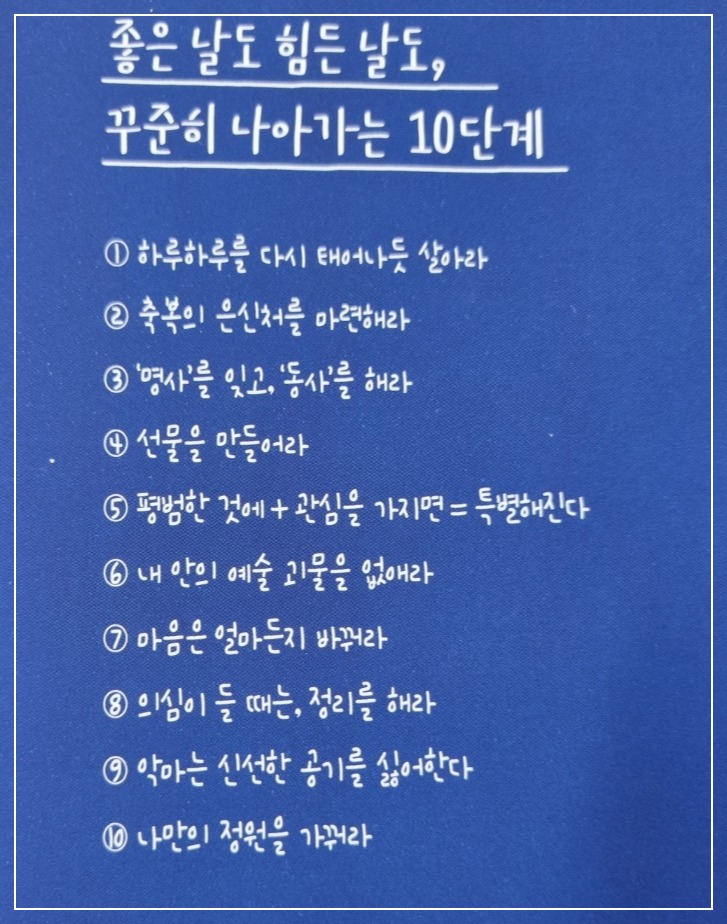 좋은 날도 힘든 날도,
꾸준히 나아가는 10단계
① 하루하루를 다시 태어나듯 살아라
② 축복의 은신처를 마련해라
③ '명사'를 잊고, '동사'를 해라
④ 선물을 만들어라
⑤ 평범한 것에 + 관심을 가지면 = 특별해진다
⑥ 내 안의 예술 괴물을 없애라
⑦ 마음은 얼마든지 바꿔라
⑧ 의심이 들 때는, 정리를 해라
⑨ 악마는 신선한 공기를 싫어한다
⑩ 나만의 정원을 가꿔라